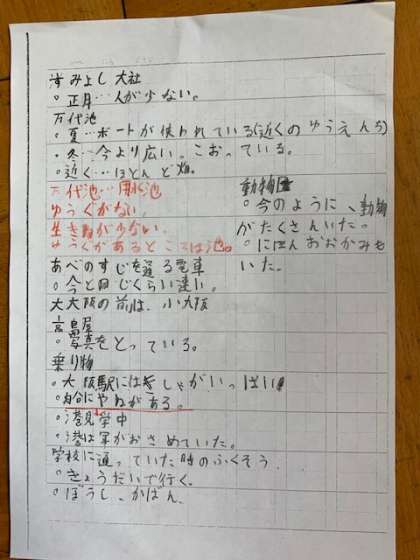 すみよし大社
○正月…人が少ない。
万代池
○夏…ボートが使われている(近くのゆうえんち)
・冬…今より広い。こおっている。
○近く…ほとんど畑。
万代池…用水池
ゆうぐがない。
生きものが少ない。
ゆうぐがあるところは池。
動物園
○今のように、動物
がたくさんいた。
○にほんおおかみも
いた。
あべのすじを通る電車
○今と同じくらい速い。
大大阪の前は、小大阪
高島屋
○写真をとっている。
乗り物
○大阪駅にはきしゃがいっぱい
○船にやねがある。
○港見学中
○港は軍がおさめていた。
学校に通っていた時のふくそう
○きょうだいで行く。
○ぼうし、かばん